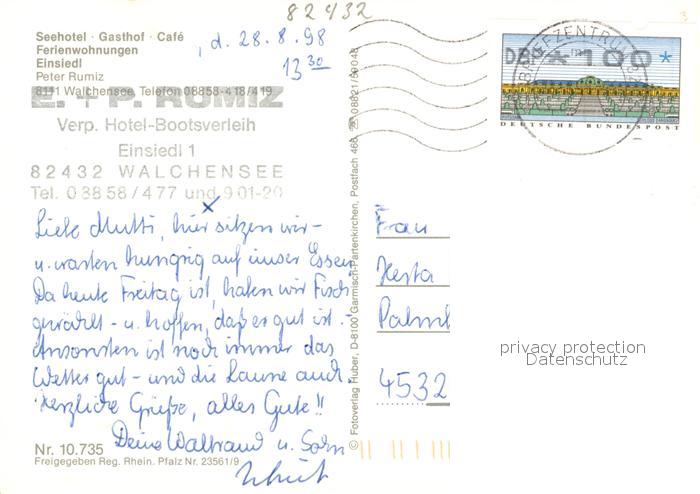 82432
Seehotel · Gasthof · Café
Ferienwohnungen
Einsiedl
Peter Rumiz
8111 Walchensee, Telefon 08858-418/419
E. + P. RUMIZ
Verp. Hotel-Bootsverleih
Einsiedl 1
82432 WALCHENSEE
Tel. 08858/477 und 9 01-20
, d. 28.8.98
13 30
Liebe Mutti, hier sitzen wir -
u. warten hungrig auf unser Essen.
Da heute Freitag ist, haben wir Fisch
gewählt - u. hoffen, daß es gut ist. -
Ansonsten ist noch immer das
Wetter gut - und die Laune auch.
Herzliche Grüße, alles Gute!!
Deine Waltraud u. Sohn
Nr. 10.735
Freigegeben Reg. Rhein. Pfalz Nr. 23561/9
© Fotoverlag Huber, D-8100 Garmisch-Partenkirchen, Postfach 466, ☎ 08821/59048
DBP * 100 *
BRIEFZENTRUM 82
DEUTSCHE BUNDESPOST
Frau
Herta
4532
privacy protection
Datenschutz